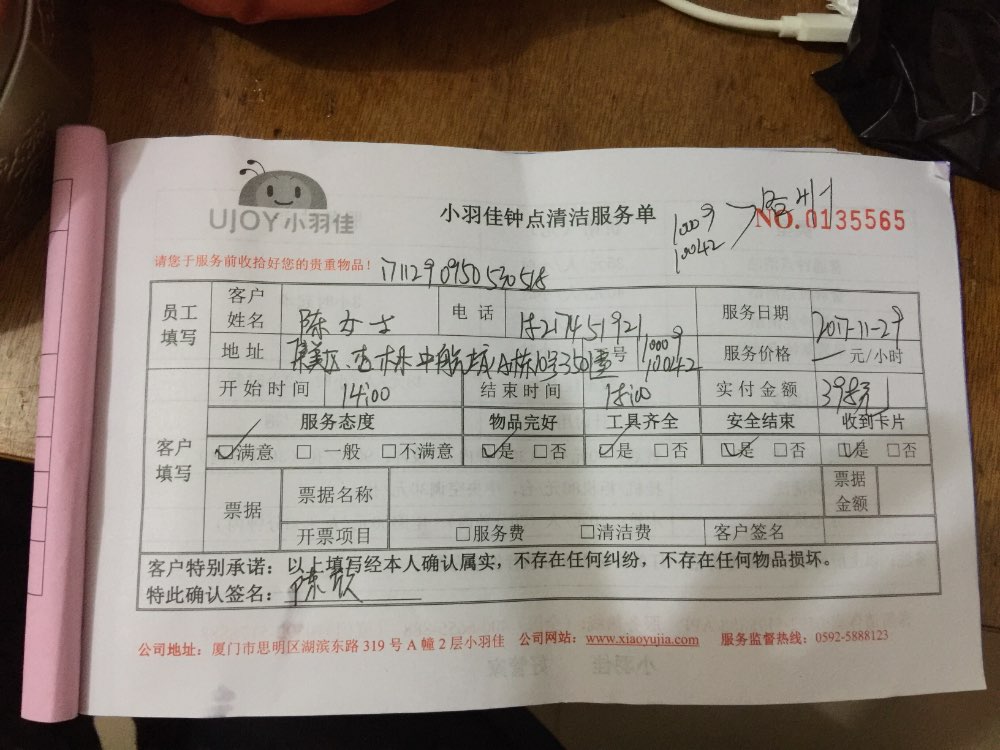 UJOY小羽佳
小羽佳钟点清洁服务单
10009
10042
NO.0135565
请您于服务前收拾好您的贵重物品！
171129095053058
员工填写 客户姓名 陈女士 电话 18217451921 服务日期 2017-11-29
地址 集美区 杏林 号 10009 10042 服务价格 一 元/小时
开始时间 14:00 结束时间 18:00 实付金额 398元
客户填写 服务态度 物品完好 工具齐全 安全结束 收到卡片
☑满意 □ 一般 □不满意 ☑是 □否 ☑是 □否 ☑是 □否 ☑是 □否
票据 票据名称 票据金额
开票项目 □服务费 □清洁费 客户签名
客户特别承诺：以上填写经本人确认属实，不存在任何纠纷，不存在任何物品损坏。
特此确认签名：陈
公司地址：厦门市思明区湖滨东路 319 号 A 幢 2 层小羽佳 公司网站：www.xiaoyujia.com 服务监督热线：0592-5888123